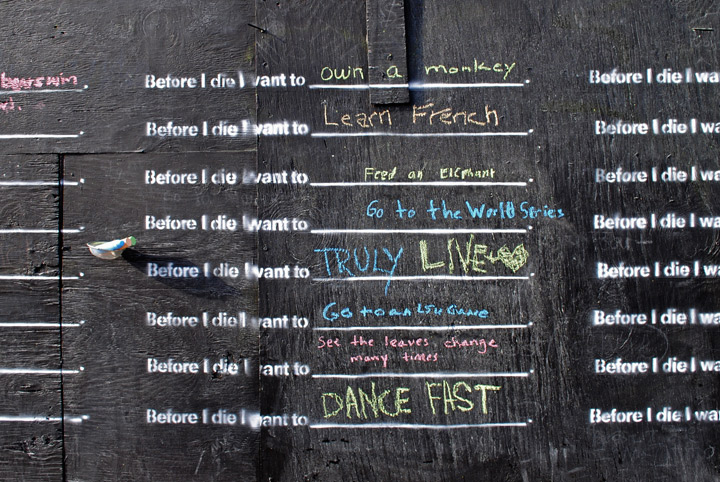 Before I die I want to own a monkey. Before I die I wa
Before I die I want to Learn French. Before I die I wa
Before I die I want to Feed an Elephant. Before I die I wa
Before I die I want to Go to the World Series. Before I die I wa
Before I die I want to TRULY LIVE. Before I die I wa
Before I die I want to Go to an LSU Game. Before I die I wa
Before I die I want to See the leaves change
many times. Before I die I wa
Before I die I want to DANCE FAST. Before I die I wa